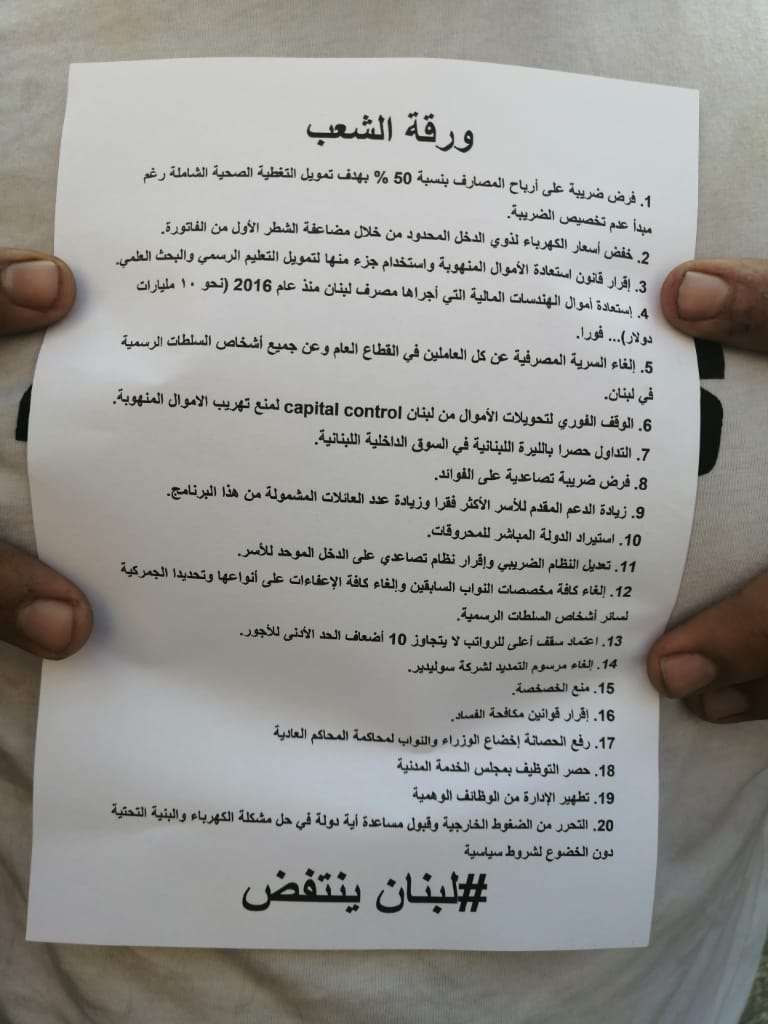 ورقة الشعب
1. فرض ضريبة على أرباح المصارف بنسبة 50 % بهدف تمويل التغطية الصحية الشاملة رغم
مبدأ عدم تخصيص الضريبة.
2. خفض أسعار الكهرباء لذوي الدخل المحدود من خلال مضاعفة الشطر الأول من الفاتورة.
3. إقرار قانون استعادة الأموال المنهوبة واستخدام جزء منها لتمويل التعليم الرسمي والبحث العلمي.
4. إستعادة أموال الهندسات المالية التي أجراها مصرف لبنان منذ عام 2016 (نحو ١٠ مليارات
دولار)... فورا.
5. إلغاء السرية المصرفية عن كل العاملين في القطاع العام وعن جميع أشخاص السلطات الرسمية
في لبنان.
6. الوقف الفوري لتحويلات الأموال من لبنان capital control لمنع تهريب الاموال المنهوبة.
7. التداول حصرا بالليرة اللبنانية في السوق الداخلية اللبنانية.
8. فرض ضريبة تصاعدية على الفوائد.
9. زيادة الدعم المقدم للأسر الأكثر فقرا وزيادة عدد العائلات المشمولة من هذا البرنامج.
10. استيراد الدولة المباشر للمحروقات.
11. تعديل النظام الضريبي وإقرار نظام تصاعدي على الدخل الموحد للأسر.
12. إلغاء كافة مخصصات النواب السابقين وإلغاء كافة الإعفاءات على أنواعها وتحديدا الجمركية
لسائر أشخاص السلطات الرسمية.
13. اعتماد سقف أعلى للرواتب لا يتجاوز 10 أضعاف الحد الأدنى للأجور.
14. إلغاء مرسوم التمديد لشركة سوليدير.
15. منع الخصخصة.
16. إقرار قوانين مكافحة الفساد.
17. رفع الحصانة إخضاع الوزراء والنواب لمحاكمة المحاكم العادية
18. حصر التوظيف بمجلس الخدمة المدنية
19. تطهير الإدارة من الوظائف الوهمية
20. التحرر من الضغوط الخارجية وقبول مساعدة أية دولة في حل مشكلة الكهرباء والبنية التحتية
دون الخضوع لشروط سياسية
#لبنان ينتفض